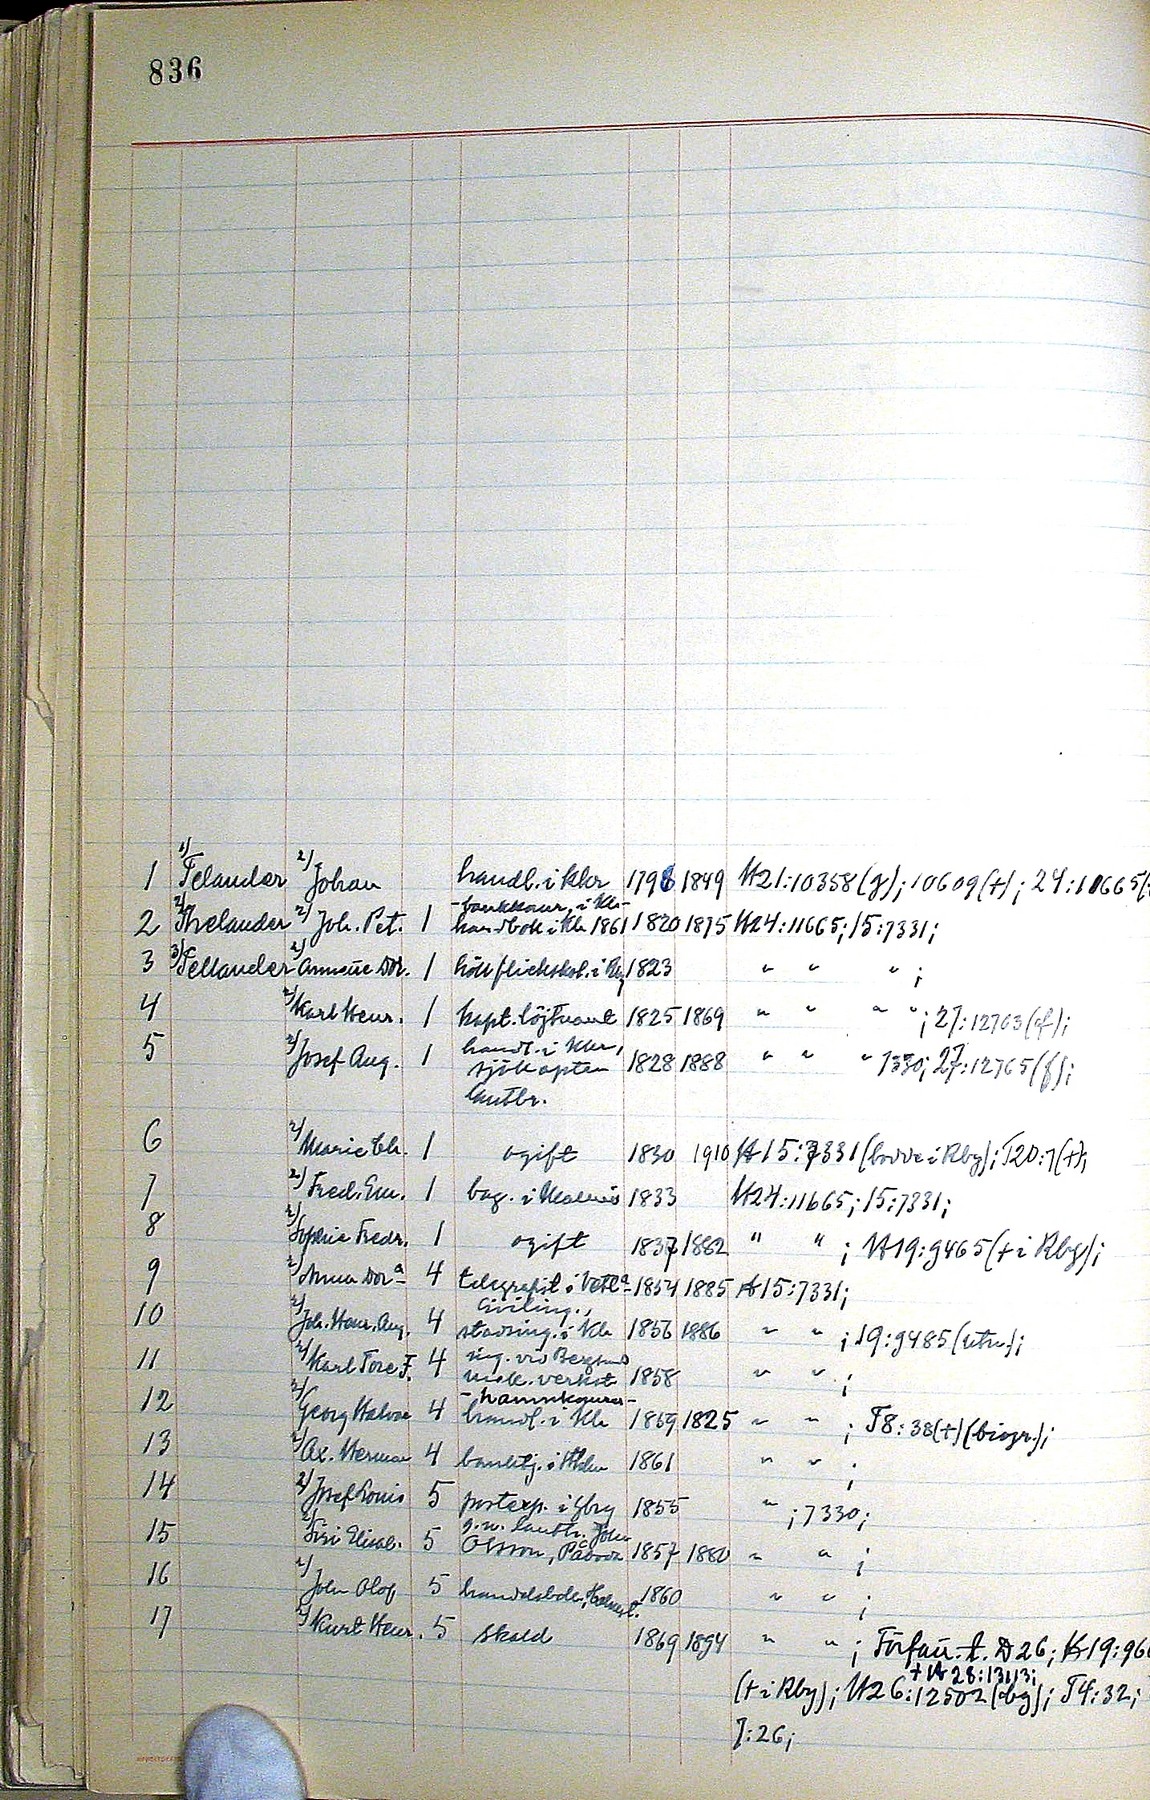 836
1 1) Telander 2) Johan handl. i Kkr 1798 1849 A21:10358(g); 10609(+); 24:10665
- bankkomr, i Kkr -
2 2) Thelander 2) Joh. Pet. 1 handbok i Kkr 1861 1820 1875 A24:11665; 15:7331;
3 3) Tellander 2) Annette Dor. 1 höll flickskol. i Rby 1823 " " " ;
4 2) Karl Henr. 1 kapt. löjtnant 1825 1869 " " " " ; 27:12763(f);
5 2) Josef Aug. 1 handl. i Kkr, 1828 1888 " " " 7330; 27:12765(f);
sjökapten
lantbr.
6 2) Marie Ch. 1 ogift 1830 1910 A15:7331 (bodde i Rby); T20:7(+);
7 2) Fred. Em. 1 bag. i Malmö 1833 A24:11665; 15:7331;
8 2) Sophie Fredr. 1 ogift 1837 1882 " " ; A19:9465(+ i Rby);
9 2) Anna Dor:a 4 telegrafist i Vetl:a 1854 1885 A15:7331;
civiling.,
10 2) Joh. Henr. Aug. 4 stadsing. i Kkr 1856 1886 " " ; 19:9485 (utn);
11 2) Karl Tore F. 4 ing. vid Berglunds 1858 " " ;
mek. verkst
- hamnkamrer -
12 2) Georg Halvar 4 handl. i Kkr 1859 1825 " " ; T8:38(+)(biogr.);
13 2) Ax. Herman 4 banktj. i Sthlm 1861 " " ;
14 2) Josef Louis 5 postexp. i Gbrg 1855 " ; 7330;
g.m. lantbr. John
15 2) Siri Elisab. 5 Olsson, 1857 1880 " " ;
16 2) John Olof 5 handelsbokh., 1860 " " ;
17 2) Kurt Henr. 5 skald 1869 1894 " " ; Förfau. t. D26; A19:966
+ A 28:13113;
(+ i Rby); A26:12502 (bg); T4:32;
7:26;